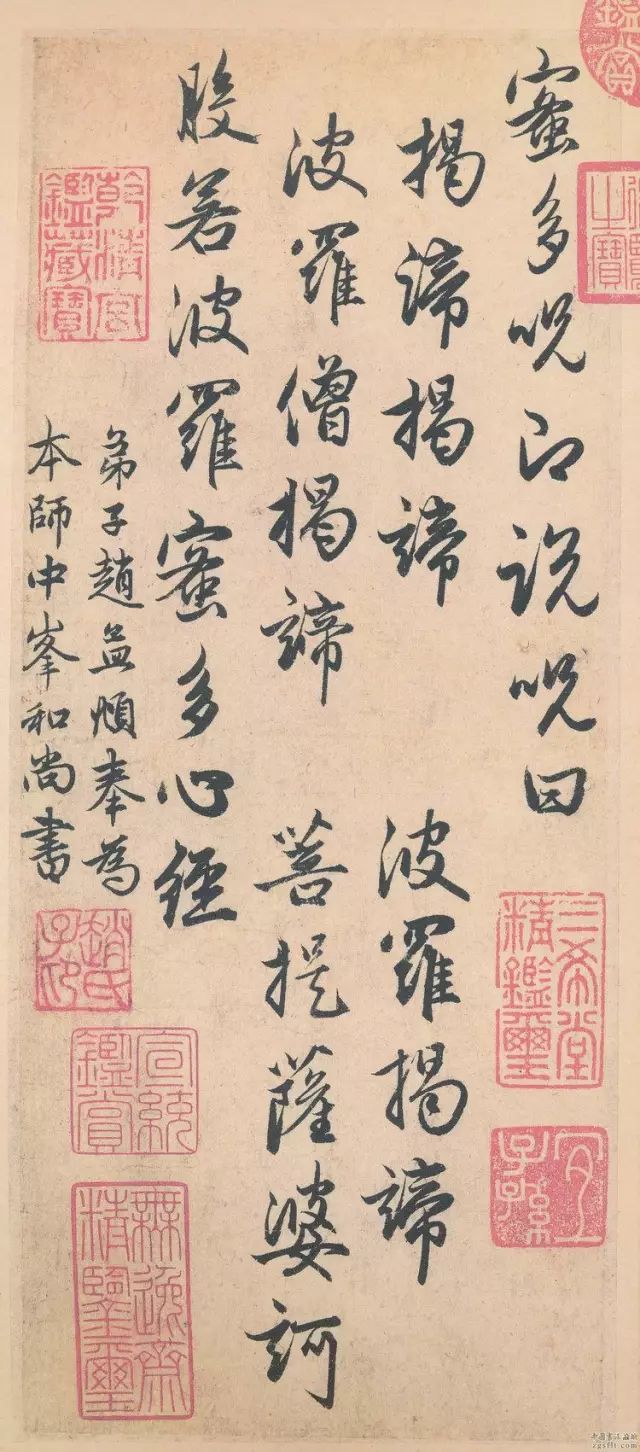 蜜多呪即說呪曰
揭諦揭諦 波羅揭諦
波羅僧揭諦 菩提薩婆訶
般若波羅蜜多心經
弟子趙孟頫奉為
本師中峯和尚書
鑑賞
之寶
三希堂精鑑璽
宜子孫
乾清宮鑑藏寶
趙氏子昂
宣統鑑賞
無逸齋精鑒璽